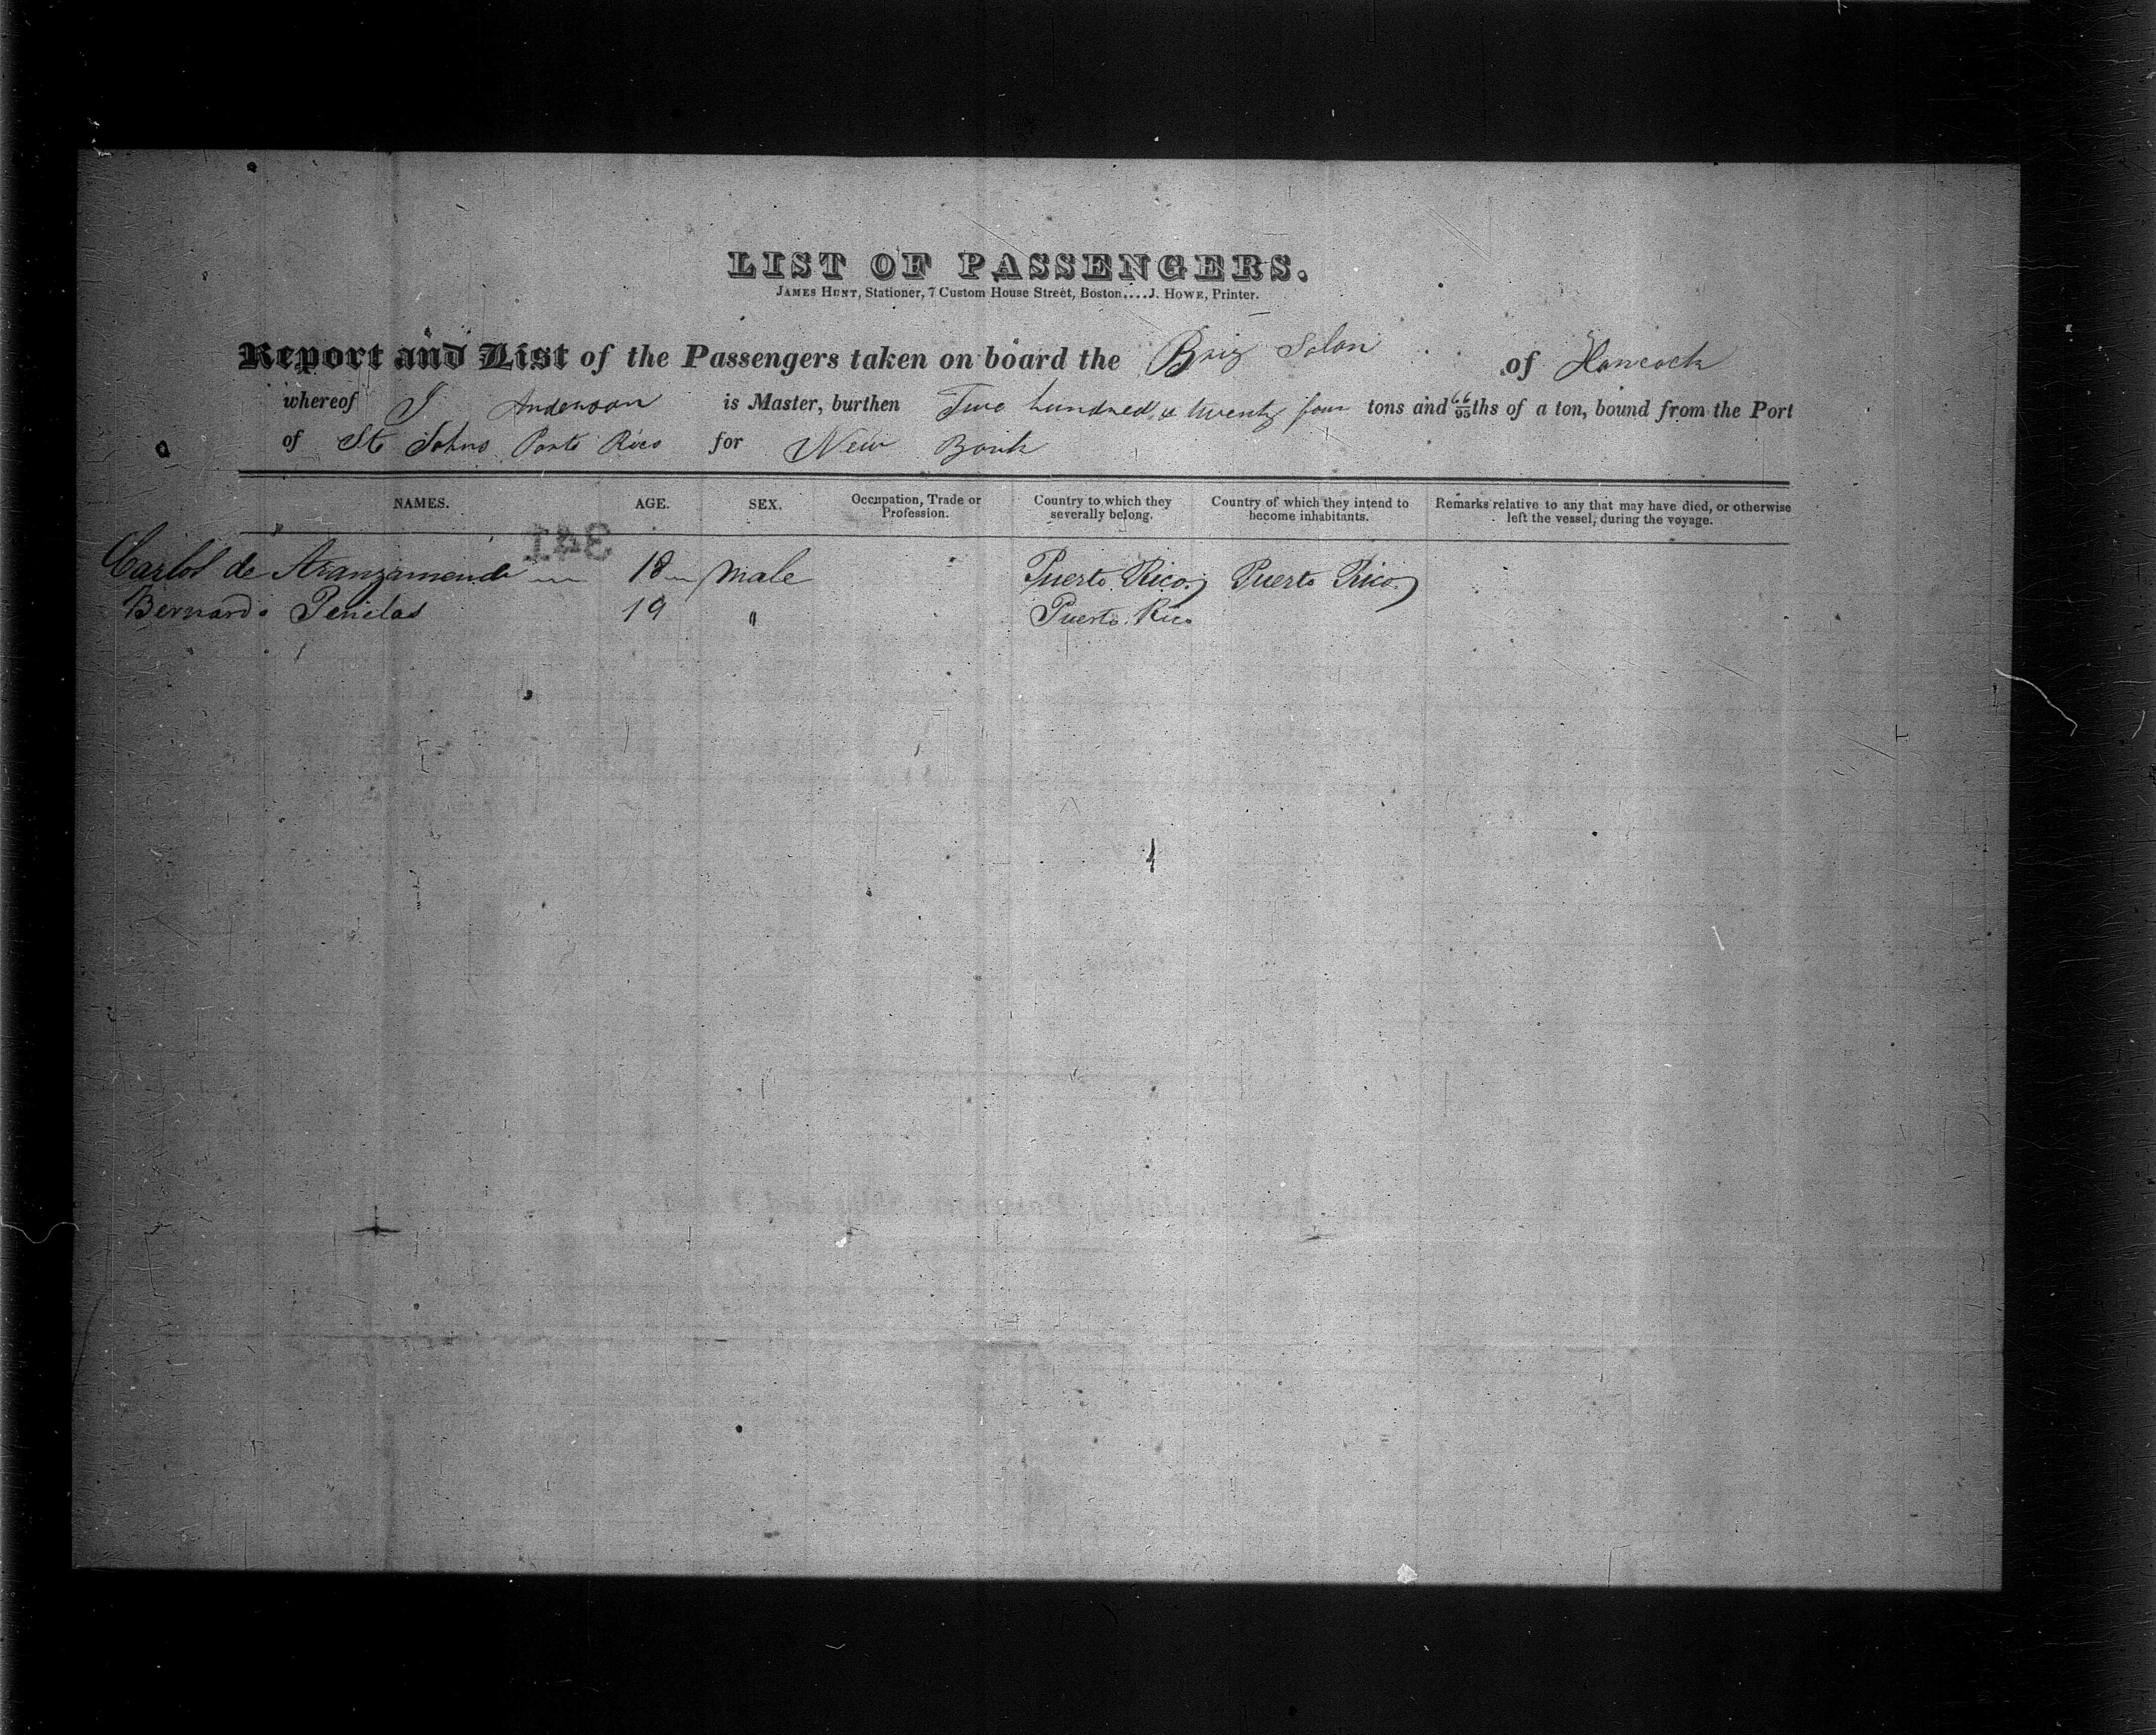 LIST OF PASSENGERS.
JAMES HUNT, Stationer, 7 Custom House Street, Boston....J. HOWE, Printer.
Report and List of the Passengers taken on board the Brig Solon of Hancock
whereof J Anderson is Master, burthen Two hundred & twenty four tons and 66/95ths of a ton, bound from the Port
of St Johns Porto Rico for New York
NAMES. AGE. SEX. Occupation, Trade or Profession. Country to which they severally belong. Country of which they intend to become inhabitants. Remarks relative to any that may have died, or otherwise left the vessel, during the voyage.
341
Carlos de Aranzamendi 18 Male Puerto Rico Puerto Rico
Bernardo 19 " Puerto Rico